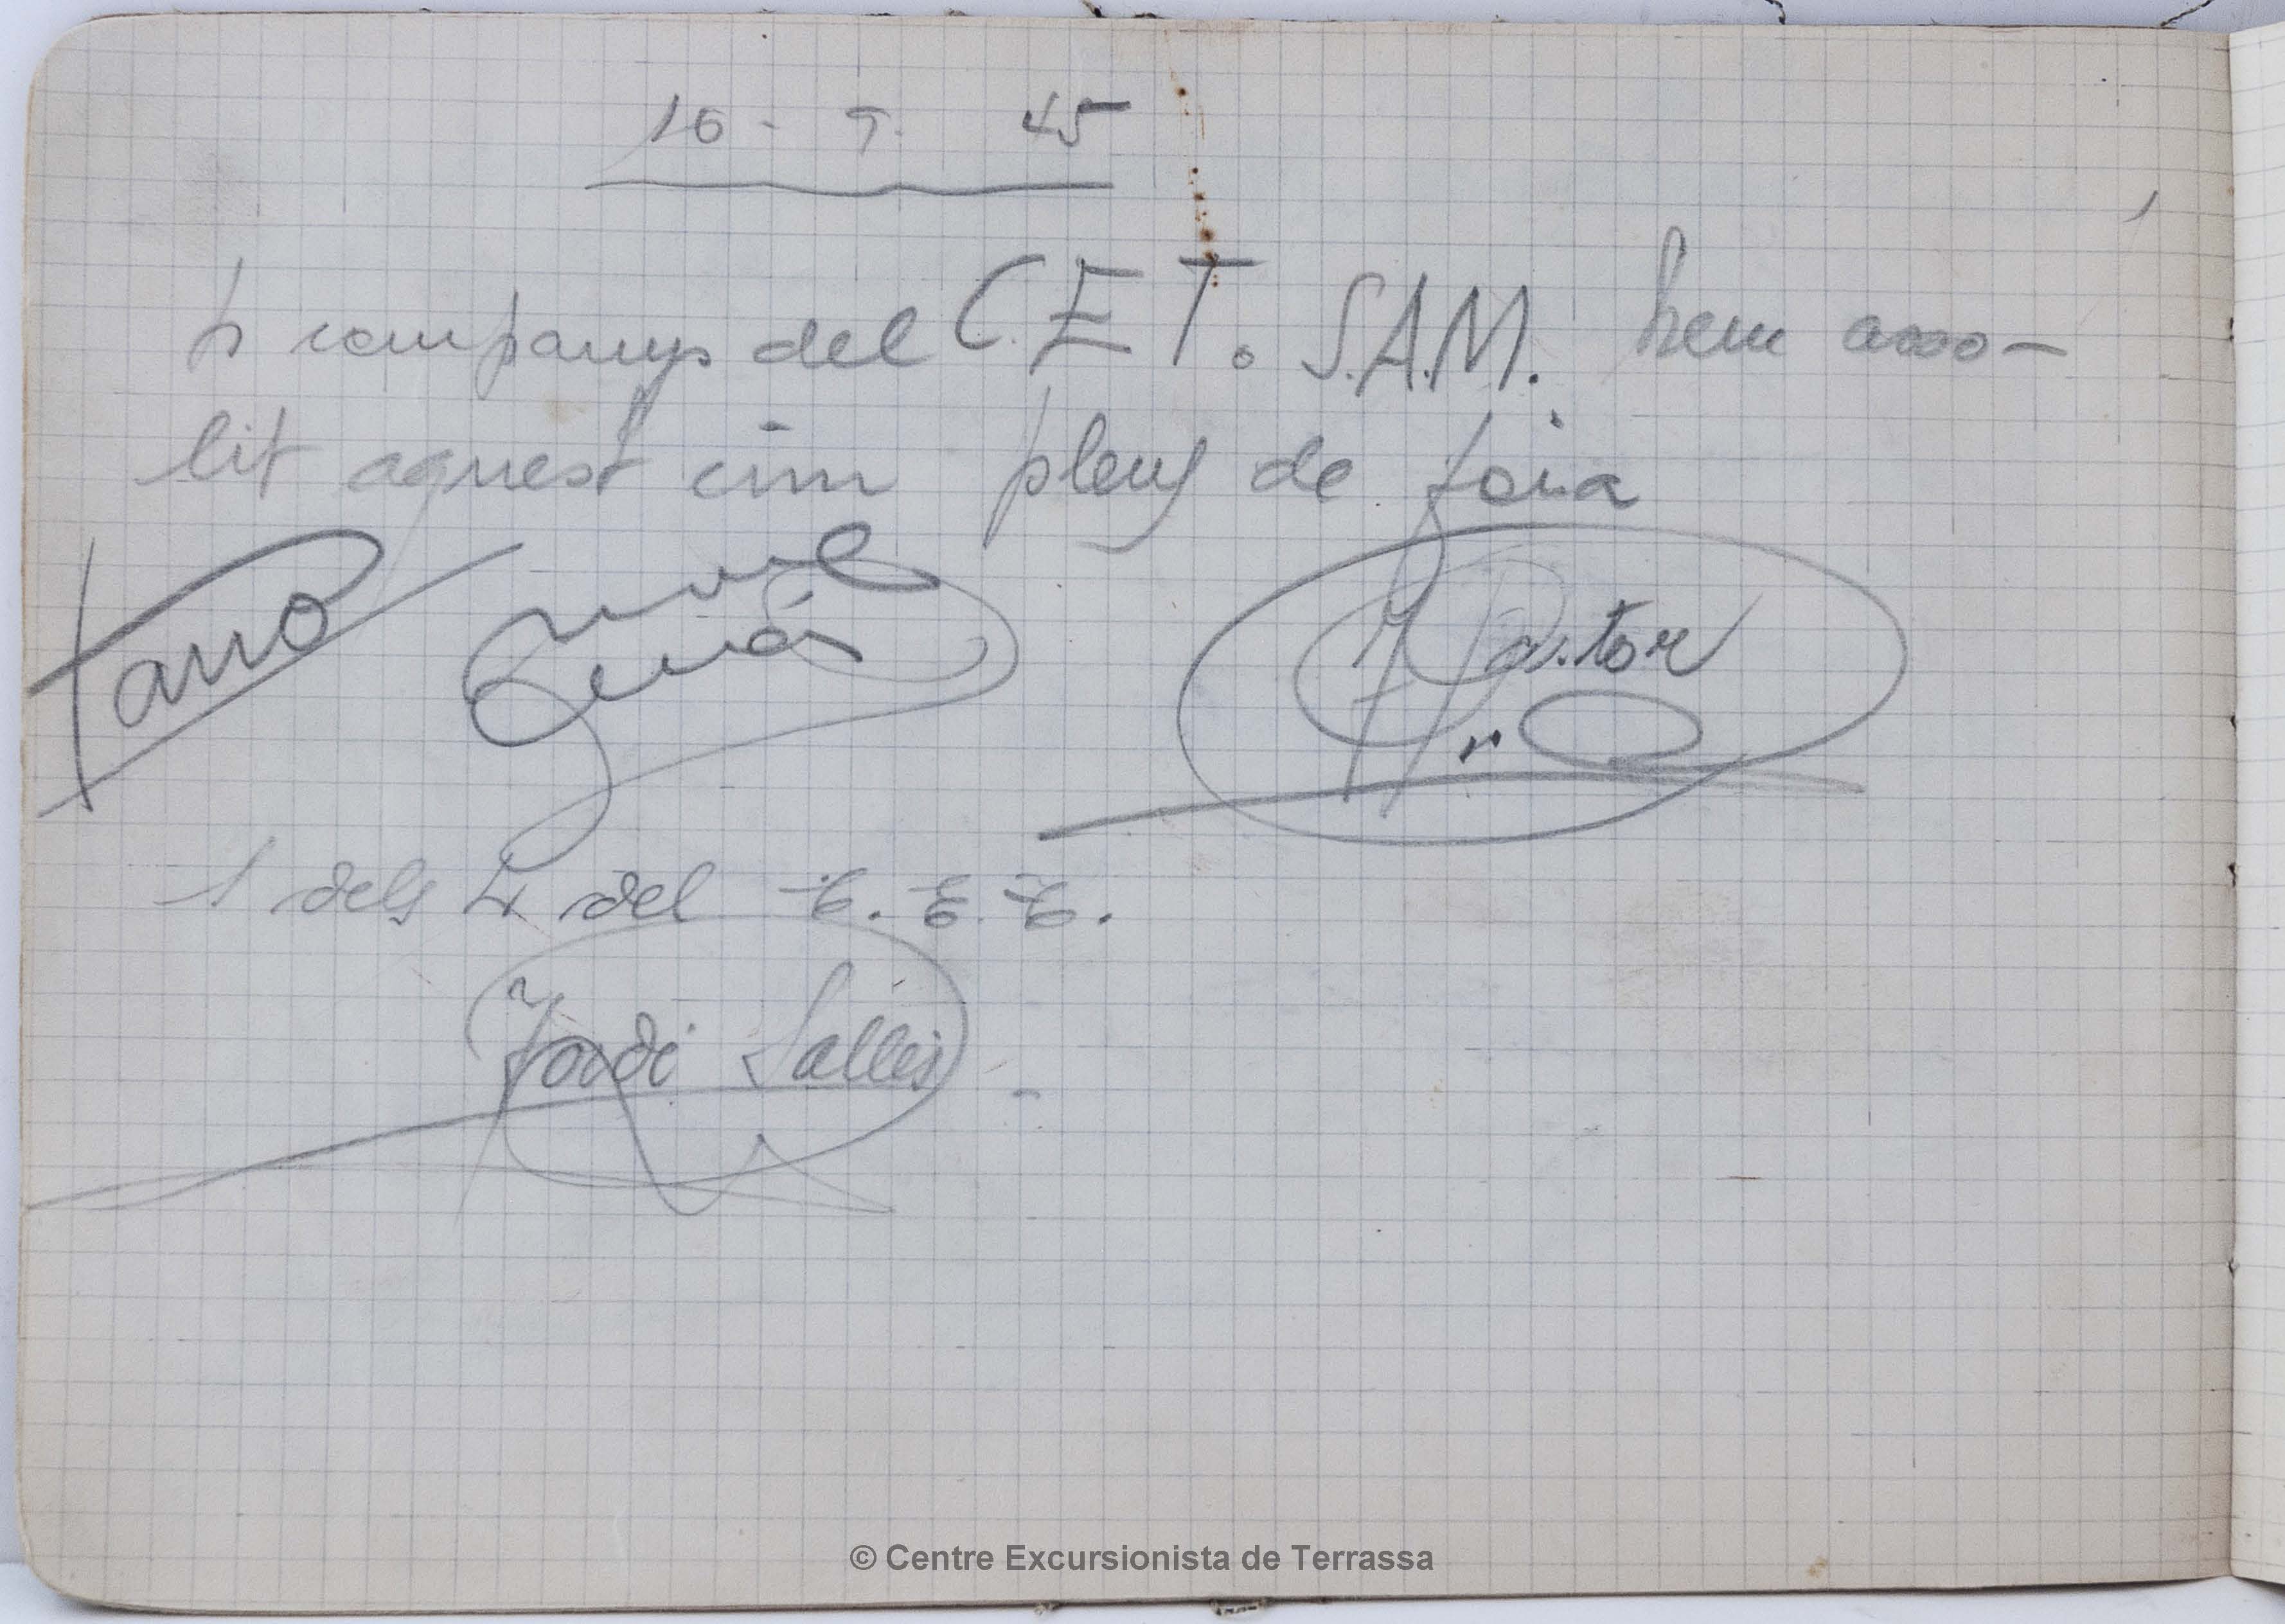 16 - 9. 45
4 companys del C.E.T. S.A.M. hem asso-
lit aquest cim plens de joia
Farró
J. Pastor
1 dels 4 del C.E.T.
Jordi Sallés
© Centre Excursionista de Terrassa